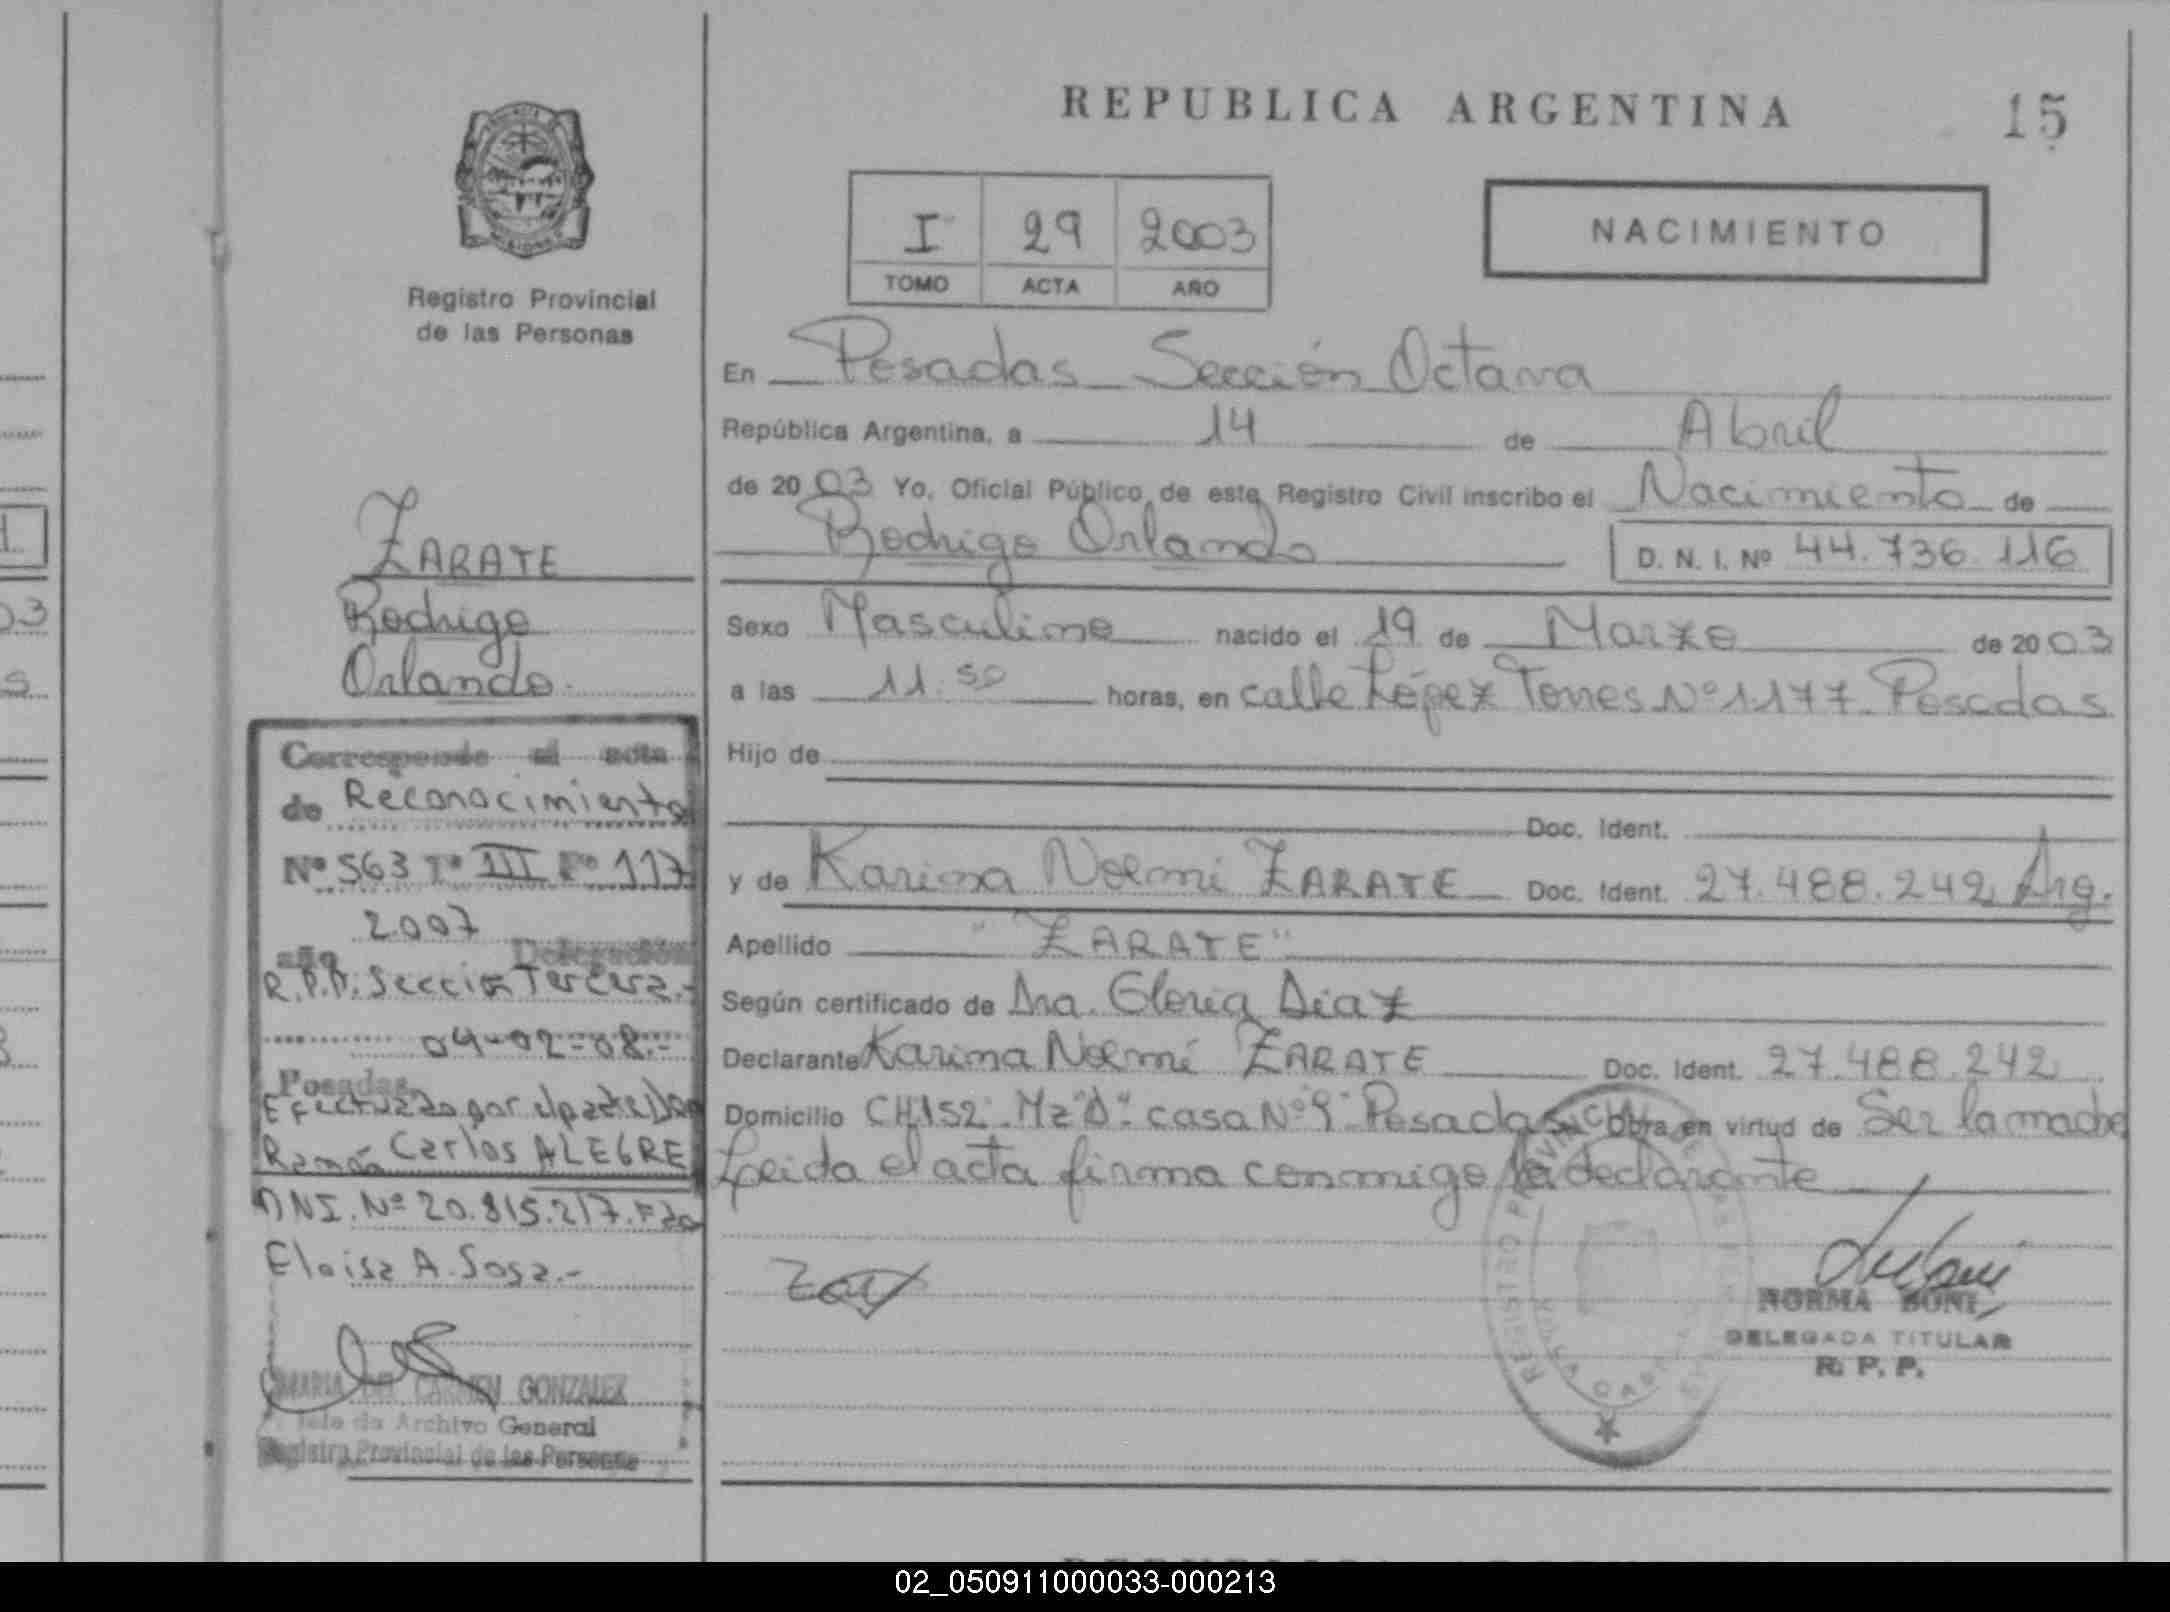 REPUBLICA ARGENTINA
15
I 29 2003
TOMO ACTA AÑO
NACIMIENTO
Registro Provincial
de las Personas
ZARATE
Rodrigo
Orlando.
Corresponde al acta
de Reconocimiento
Nº 563 Tº III Fº 117
2007
año Delegación
R.P.P. Sección Tercera.-
04-02-08.-
Posadas,
Efectuado por el padre Don
Ramón Carlos ALEGRE
DNI. Nº 20.815.217. Fdo
Eloisa A. Sosa.-
MARIA DEL CARMEN GONZALEZ
Jefe de Archivo General
Registro Provincial de las Personas
En Posadas Sección Octava
República Argentina, a 14 de Abril
de 2003 Yo, Oficial Público de este Registro Civil inscribo el Nacimiento de
Rodrigo Orlando D. N. I. Nº 44.736.116
Sexo Masculino nacido el 19 de Marzo de 2003
a las 11.50 horas, en calle López Torres Nº 1177 Posadas
Hijo de
Doc. Ident.
y de Karina Noemi ZARATE Doc. Ident. 27.488.242 Arg.
Apellido "ZARATE"
Según certificado de Dra. Gloria Diaz
Declarante Karina Noemí ZARATE Doc. Ident. 27.488.242
Domicilio CH152 Mz "D" casa Nº 9 Posadas Obra en virtud de Ser la madre
Leida el acta firma conmigo la declarante
NORMA BONI
DELEGADA TITULAR
R. P. P.
02_050911000033-000213